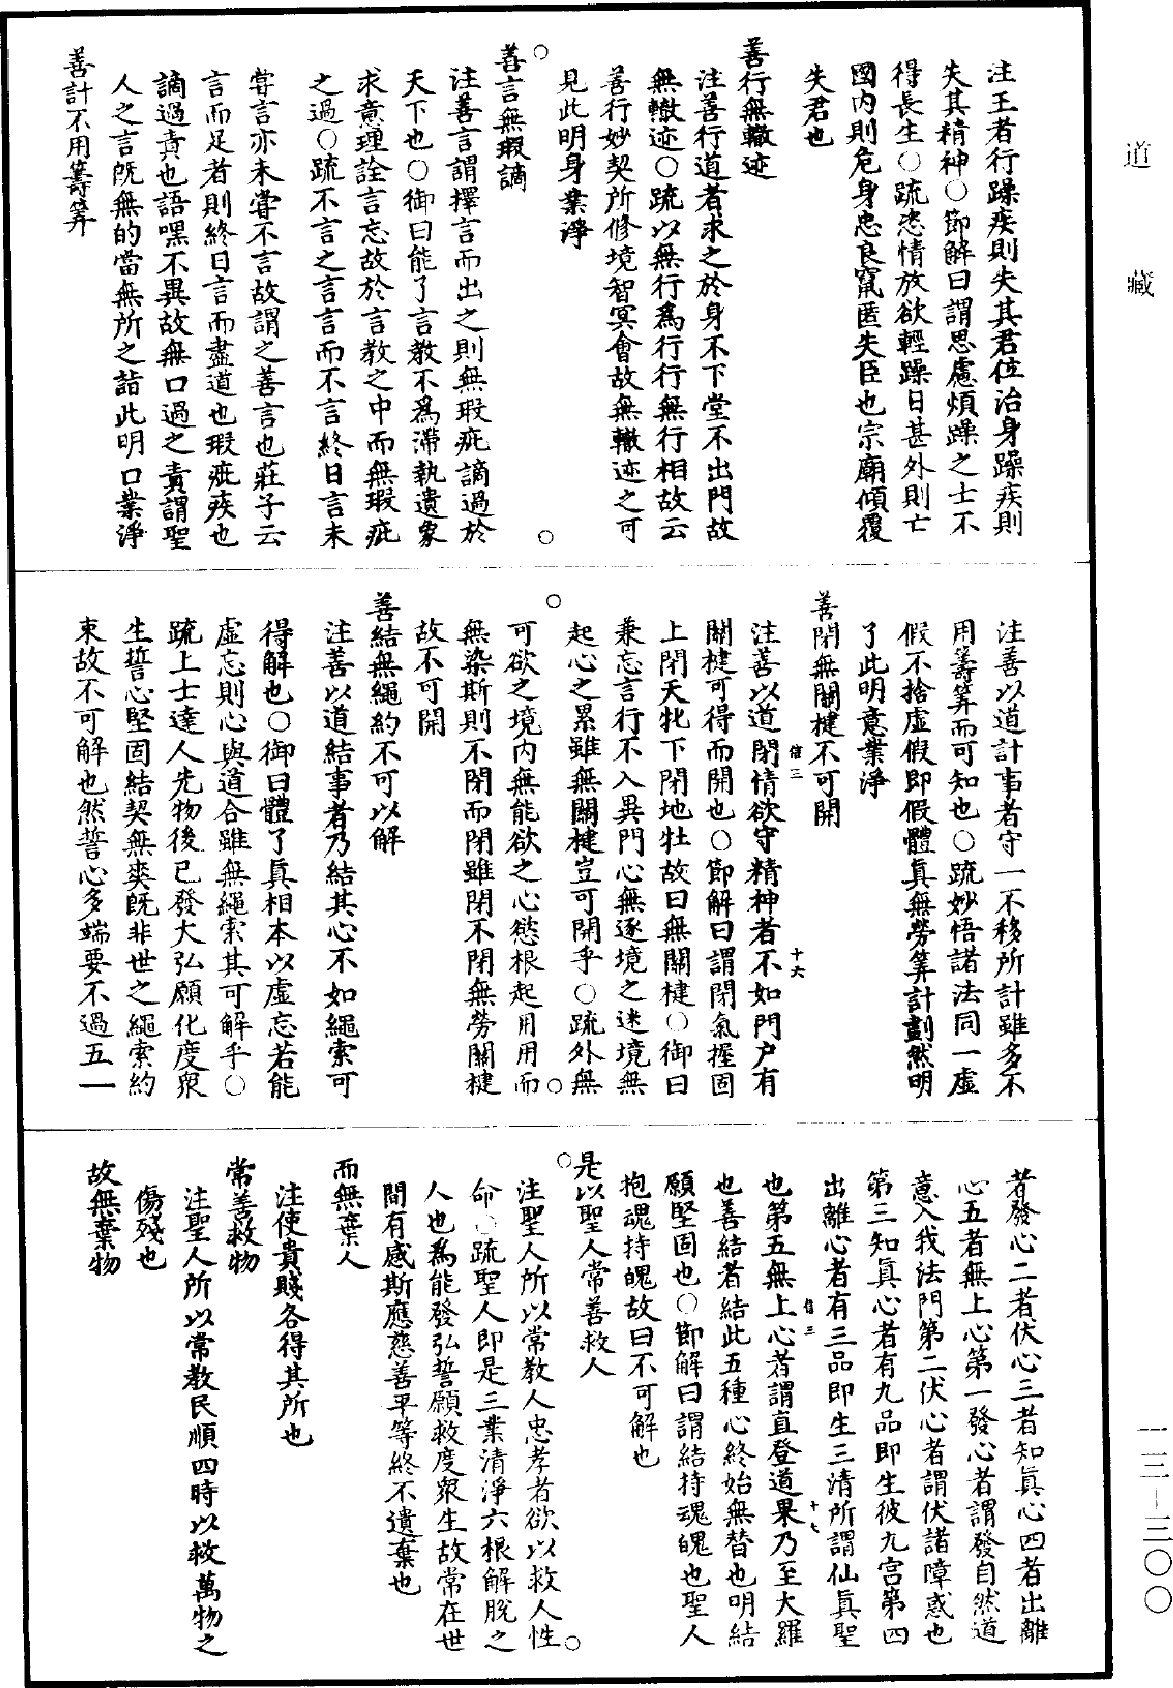 道藏
注王者行躁疾則失其君位治身躁疾則
失其精神○節解曰謂思慮煩躁之士不
得長生○疏恣情放欲輕躁日甚外則亡
國内則危身忠良竄匿失臣也宗廟傾覆
失君也
善行無轍迹
注善行道者求之於身不下堂不出門故
無轍迹○疏以無行為行行無行相故云
善行妙契所修境智冥會故無轍迹之可
見此明身業淨
○善言無瑕謫○
注善言謂擇言而出之則無瑕疵謫過於
天下也○御曰能了言教不為滯執遺象
求意理詮言忘故於言教之中而無瑕疵
之過○疏不言之言言而不言終日言未
嘗言亦未嘗不言故謂之善言也莊子云
言而足者則終日言而盡道也瑕疵疾也
謫過責也語嘿不異故無口過之責謂聖
人之言既無的當無所之詰此明口業淨
善計不用籌筭
注善以道計事者守一不移所計雖多不
用籌筭而可知也○疏妙悟諸法同一虛
假不捨虛假即假體真無勞筭計劃然明
了此明意業淨
善閉無關楗不可開
信三
十六
注善以道閉情欲守精神者不如門户有
關楗可得而開也○節解曰謂閉氣握固
上閉天牝下閉地牡故曰無關楗○御曰
兼忘言行不入異門心無逐境之迷境無
起心之累雖無關楗豈可開乎○疏外無
○可欲之境内無能欲之心慾根起用用而○
無染斯則不閉而閉雖閉不閉無勞關楗
故不可開
善結無繩約不可以解
注善以道結事者乃結其心不如繩索可
得解也○御曰體了真相本以虛忘若能
虛忘則心與道合雖無繩索其可解乎○
疏上士達人先物後己發大弘願化度衆
生誓心堅固結契無爽既非世之繩索約
束故不可解也然誓心多端要不過五一
者發心二者伏心三者知真心四者出離
心五者無上心第一發心者謂發自然道
意入我法門第二伏心者謂伏諸障惑也
第三知真心者有九品即生彼九宮第四
出離心者有三品即生三清所謂仙真聖
信三
十七
也第五無上心者謂直登道果乃至大羅
也善結者結此五種心終始無替也明結
願堅固也○節解曰謂結持魂魄也聖人
抱魂持魄故曰不可解也
是以聖人常善救人
○注聖人所以常教人忠孝者欲以救人性○
命○疏聖人即是三業清淨六根解脫之
人也為能發弘誓願救度衆生故常在世
間有感斯應慈善平等終不遺棄也
而無棄人
注使貴賤各得其所也
常善救物
注聖人所以常教民順四時以救萬物之
傷殘也
故無棄物
一三—三〇〇